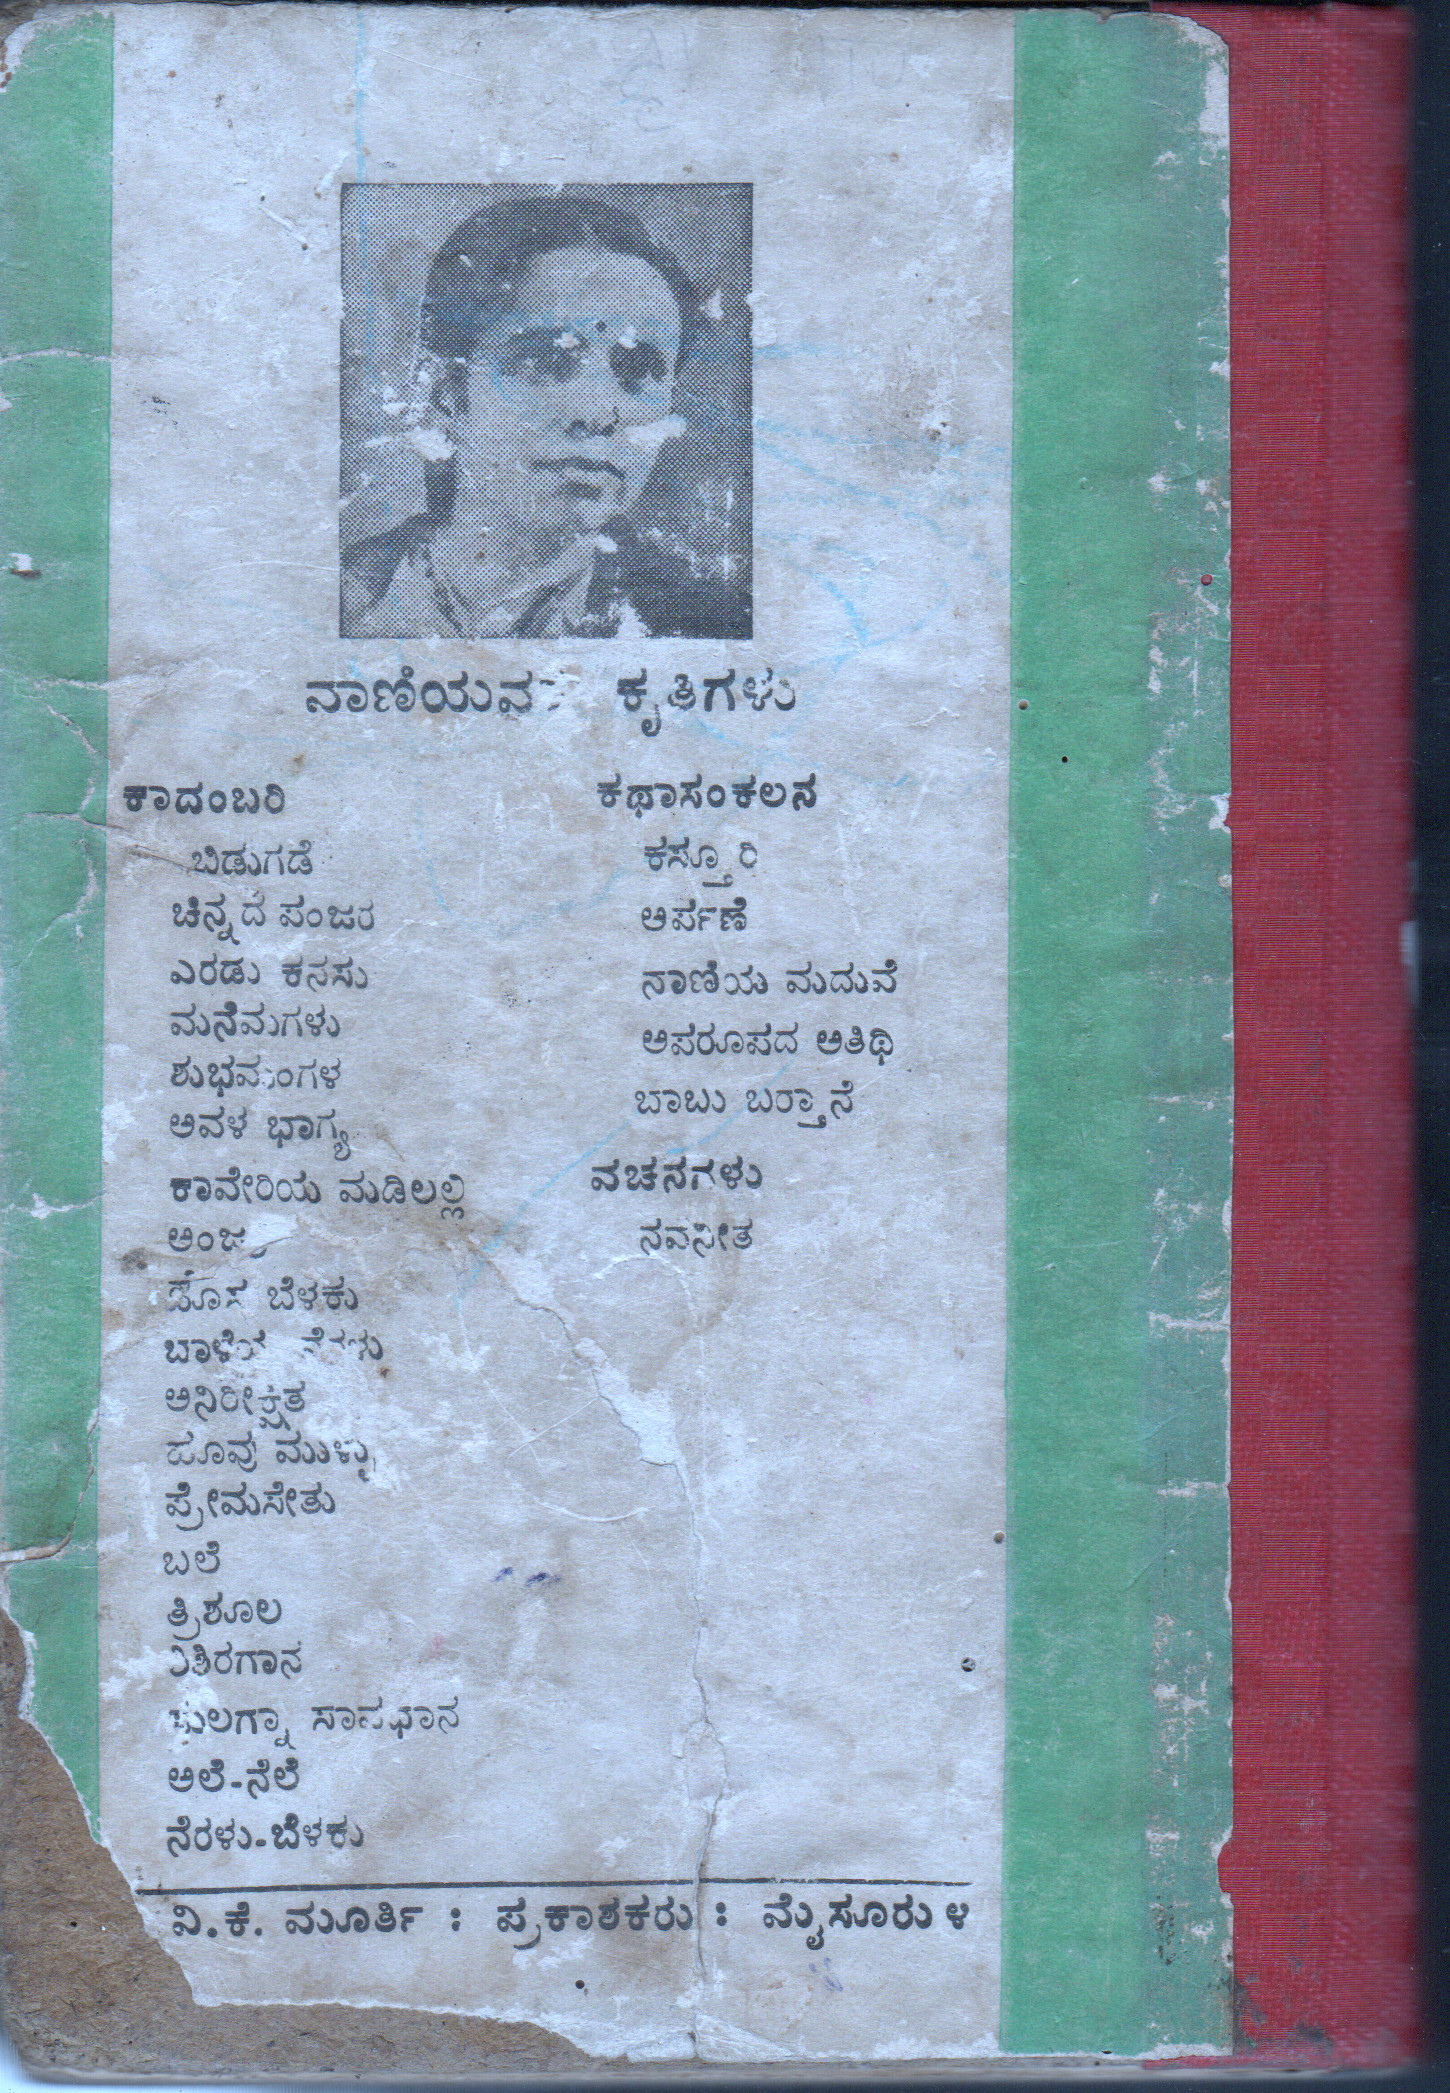 ಕೃತಿಗಳು
ಕಾದಂಬರಿ
ಬಿಡುಗಡೆ
ಚಿನ್ನದ ಪಂಜರ
ಎರಡು ಕನಸು
ಮನೆಮಗಳು
ಶುಭಮಂಗಳ
ಅವಳ ಭಾಗ್ಯ
ಕಾವೇರಿಯ ಮಡಿಲಲ್ಲಿ
ಹೊಸ ಬೆಳಕು
ಅನಿರೀಕ್ಷಿತ
ಹೂವು ಮುಳ್ಳು
ಪ್ರೇಮಸೇತು
ಬಲೆ
ತ್ರಿಶೂಲ
ಸಾವಧಾನ
ಅಲೆ-ನೆಲೆ
ನೆರಳು-ಬೆಳಕು
ಕಥಾಸಂಕಲನ
ಕಸ್ತೂರಿ
ಅರ್ಪಣೆ
ನಾಣಿಯ ಮದುವೆ
ಅಪರೂಪದ ಅತಿಥಿ
ಬಾಬು ಬರ್‍ತಾನೆ
ವಚನಗಳು
ನವನೀತ
ವಿ.ಕೆ. ಮೂರ್ತಿ : ಪ್ರಕಾಶಕರು : ಮೈಸೂರು ೪